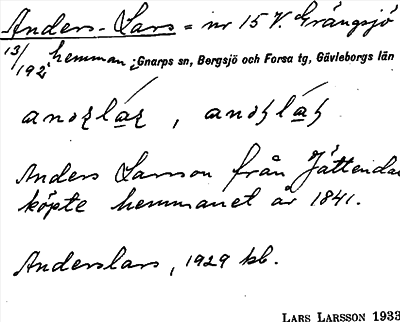 Anders-Lars = nr 15 V. Grängsjö
13/192 hemman; Gnarps sn, Bergsjö och Forsa tg, Gävleborgs län
Anders Larsson från Jättendal
köpte hemmanet år 1841.
Anderslars, 1929 kb.
LARS LARSSON 1933